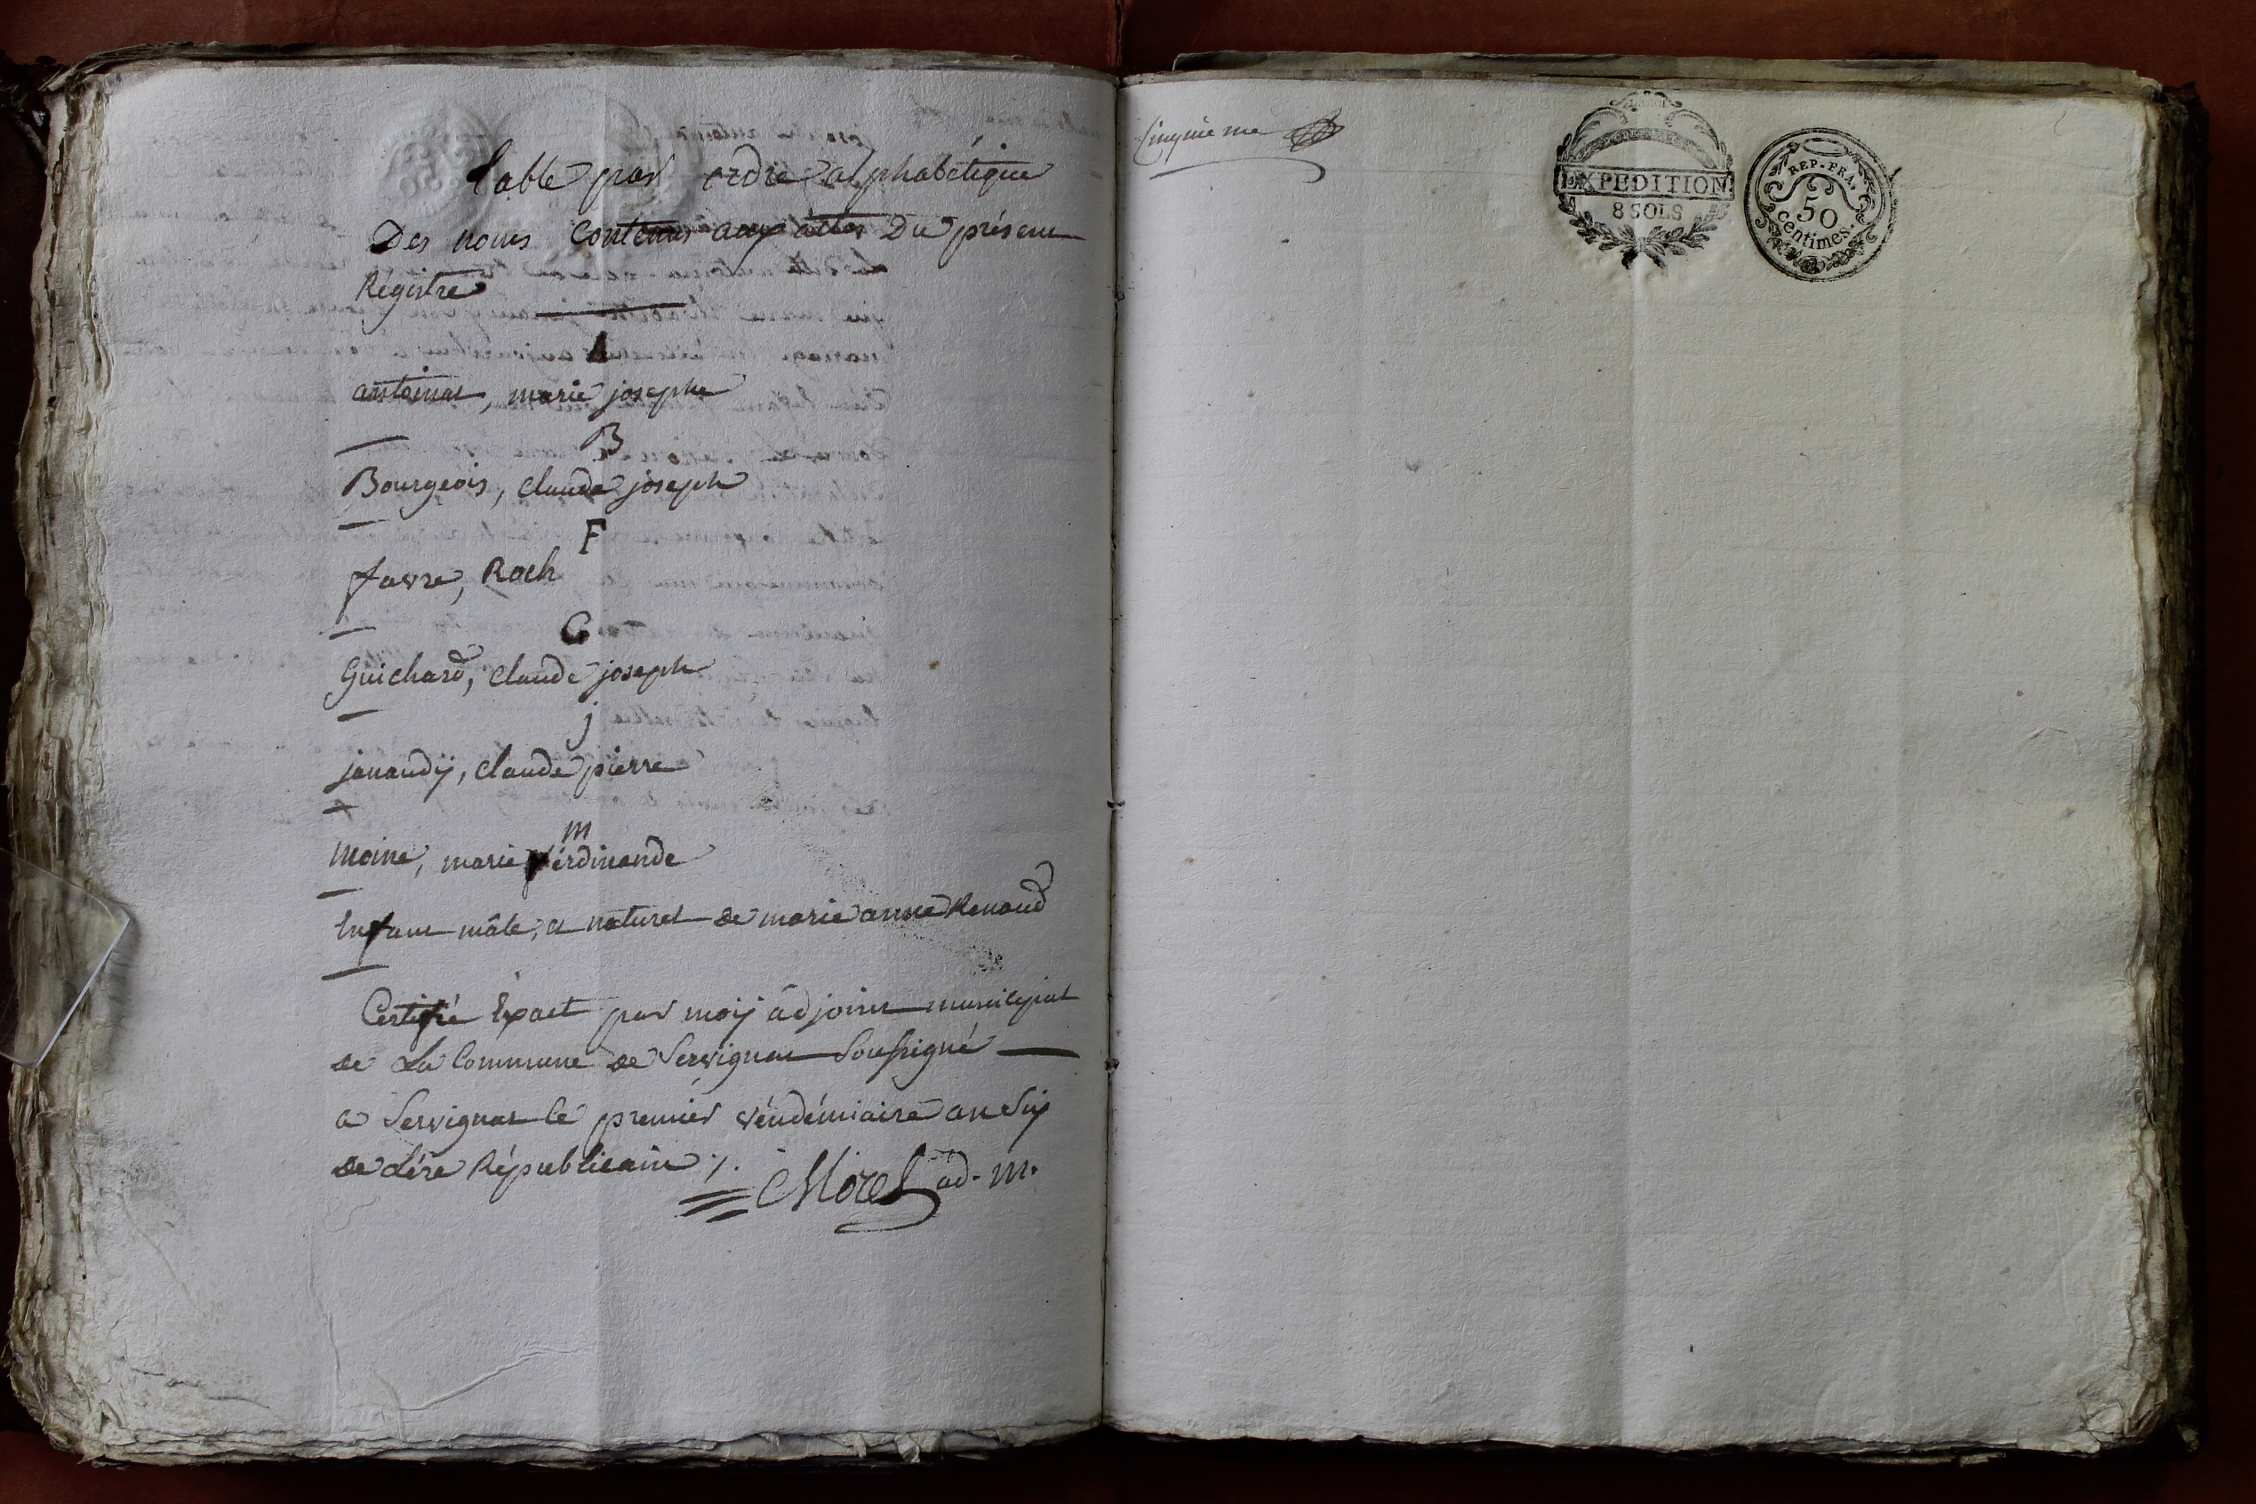 Table par ordre alphabétique
Des noms contenus aux actes Du présent
Régistre
A
antoinat, marie josephe
B
Bourgeois, claude joseph
F
favre, Roch
G
Guichard, claude joseph
j
jauaudÿ, claude pierre
m
moine, marie ferdinande
Enfant mâle, et naturel de marie anne Renaud
Certifié Exact par moÿ âdjoint municipal
de La Commune de Servignat Soussigné
a Servignat le premier véndémiaire an Six
de L'ére Républicain ./.
CMorel ad. m.
Cinquieme
EXPEDITION
8 SOLS
REP. FRA.
50
Centimes.